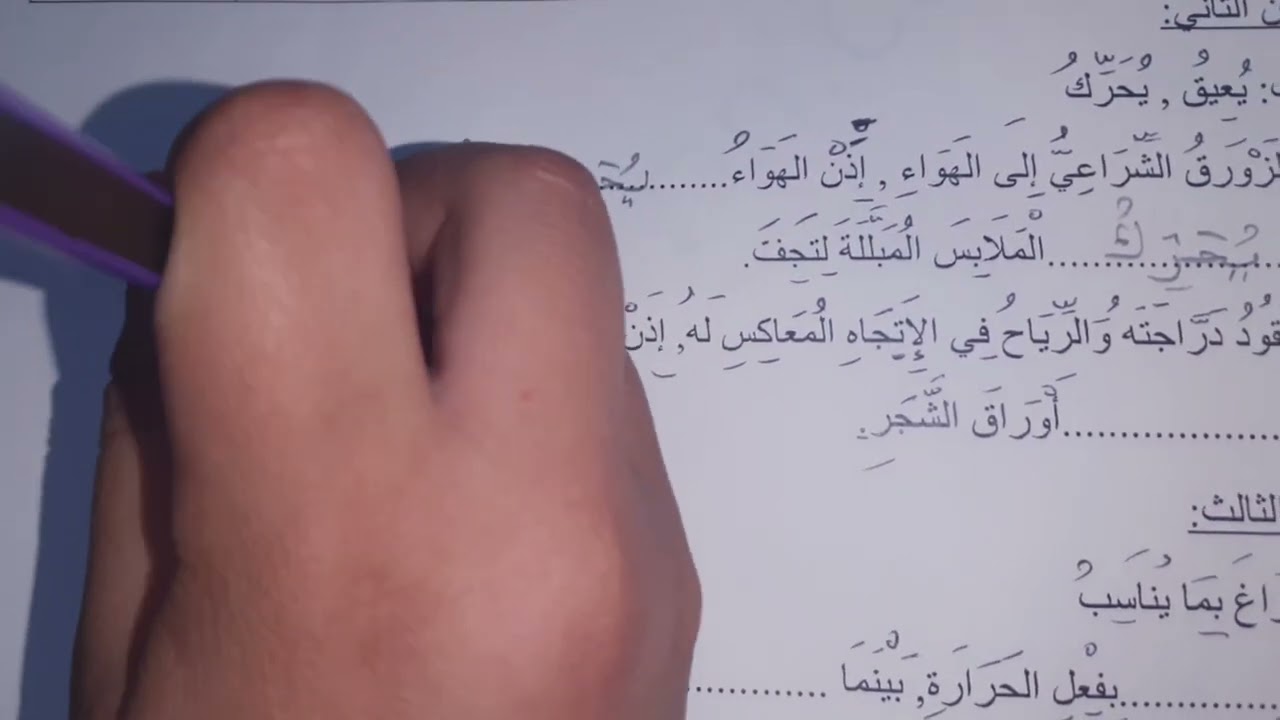 الثاني:
: يُعِيقُ , يُحَرِّكُ
الشِّرَاعِيُّ إِلَى الهَوَاءِ , إِذَنْ الهَوَاءُ........
يُحَرِّكُ..........الْمَلَابِسَ الُمَبَلَّلَةَ لِتَجِفَّ.
دَرَّاجَتَه وَالرِّيَاحُ فِي الإِتِجَاهِ الُمَعَاكِسِ لَهُ, إِذَنْ
....................أَوْرَاقَ الشَّجَرِ.
الثالث:
بِمَا يُنَاسِبُ
..........بِفِعْلِ الحَرَارَةِ, بَيْنَمَا ..........